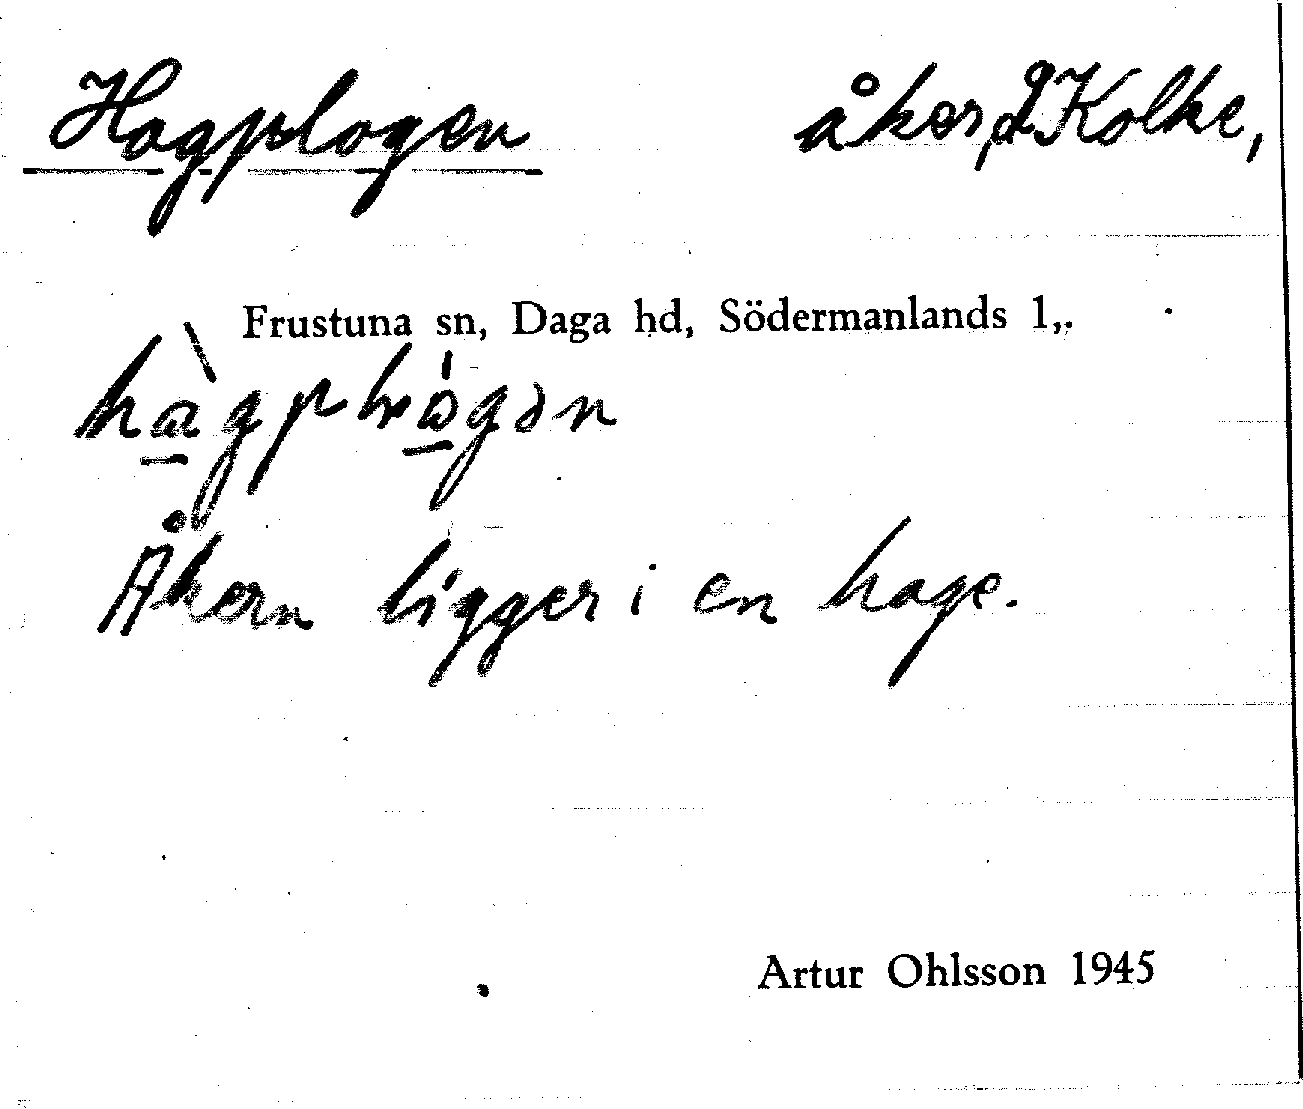 Hagplogen åker, å Kolke,
Frustuna sn, Daga hd, Södermanlands l.,
Åkern ligger i en hage.
Artur Ohlsson 1945